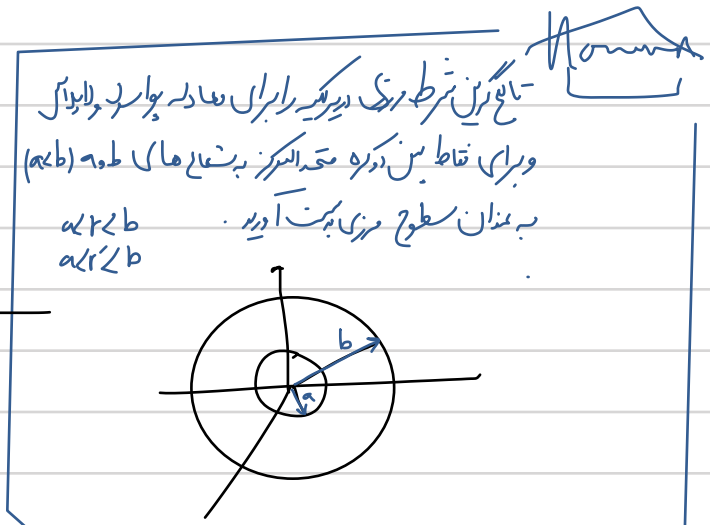 Homework
تابع گرین شرط مرزی دیریکله را برای معادله پواسون و لاپلاس
و برای نقاط بین دو کره متحدالمرکز به شعاع های a و b (a<b)
به عنوان سطوح مرزی بدست آورید.
a<r<b
a<r'<b
b
a